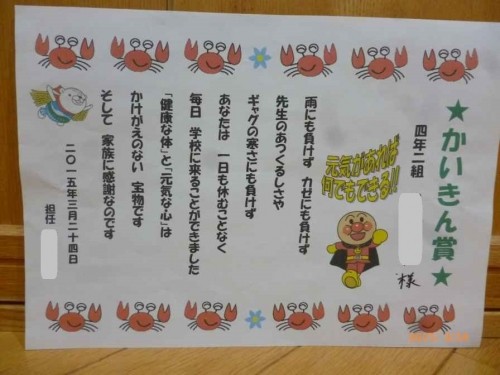 ★かいきん賞★
四年二組
様
元気があれば
何でもできる!!
雨にも負けず カゼにも負けず
先生のあつくるしさや
ギャグの寒さにも負けず
あなたは 一日も休むことなく
毎日 学校に来ることができました
「健康な体」と「元気な心」は
かけがえのない 宝物です
そして 家族に感謝なのです
二〇一五年三月二十四日
担任